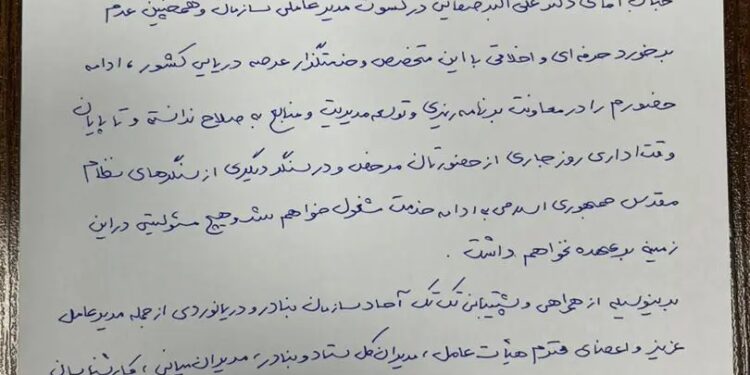 جناب آقای دکتر علی اکبر صفایی در کسوت مدیرعاملی سازمان و همچنین عدم
برخورد حرفه ای و اخلاقی با این متخصص و خدمتگذار عرصه دریایی کشور ، ادامه
حضورم را در معاونت برنامه ریزی و توسعه مدیریت و منابع به صلاح ندانسته و تا پایان
وقت اداری روز جاری از حضورتان مرخص و در سنگر دیگری از سنگرهای نظام
مقدس جمهوری اسلامی به ادامه خدمت مشغول خواهم شد و هیچ مسئولیتی در این
زمینه بر عهده نخواهم داشت .
بدینوسیله از همراهی و پشتیبانی تک تک آحاد سازمان بنادر و دریانوردی از جمله مدیرعامل
عزیز و اعضای محترم هیأت عامل ، مدیران کل ستاد و بنادر ، مدیران میانی ، کارشناسان